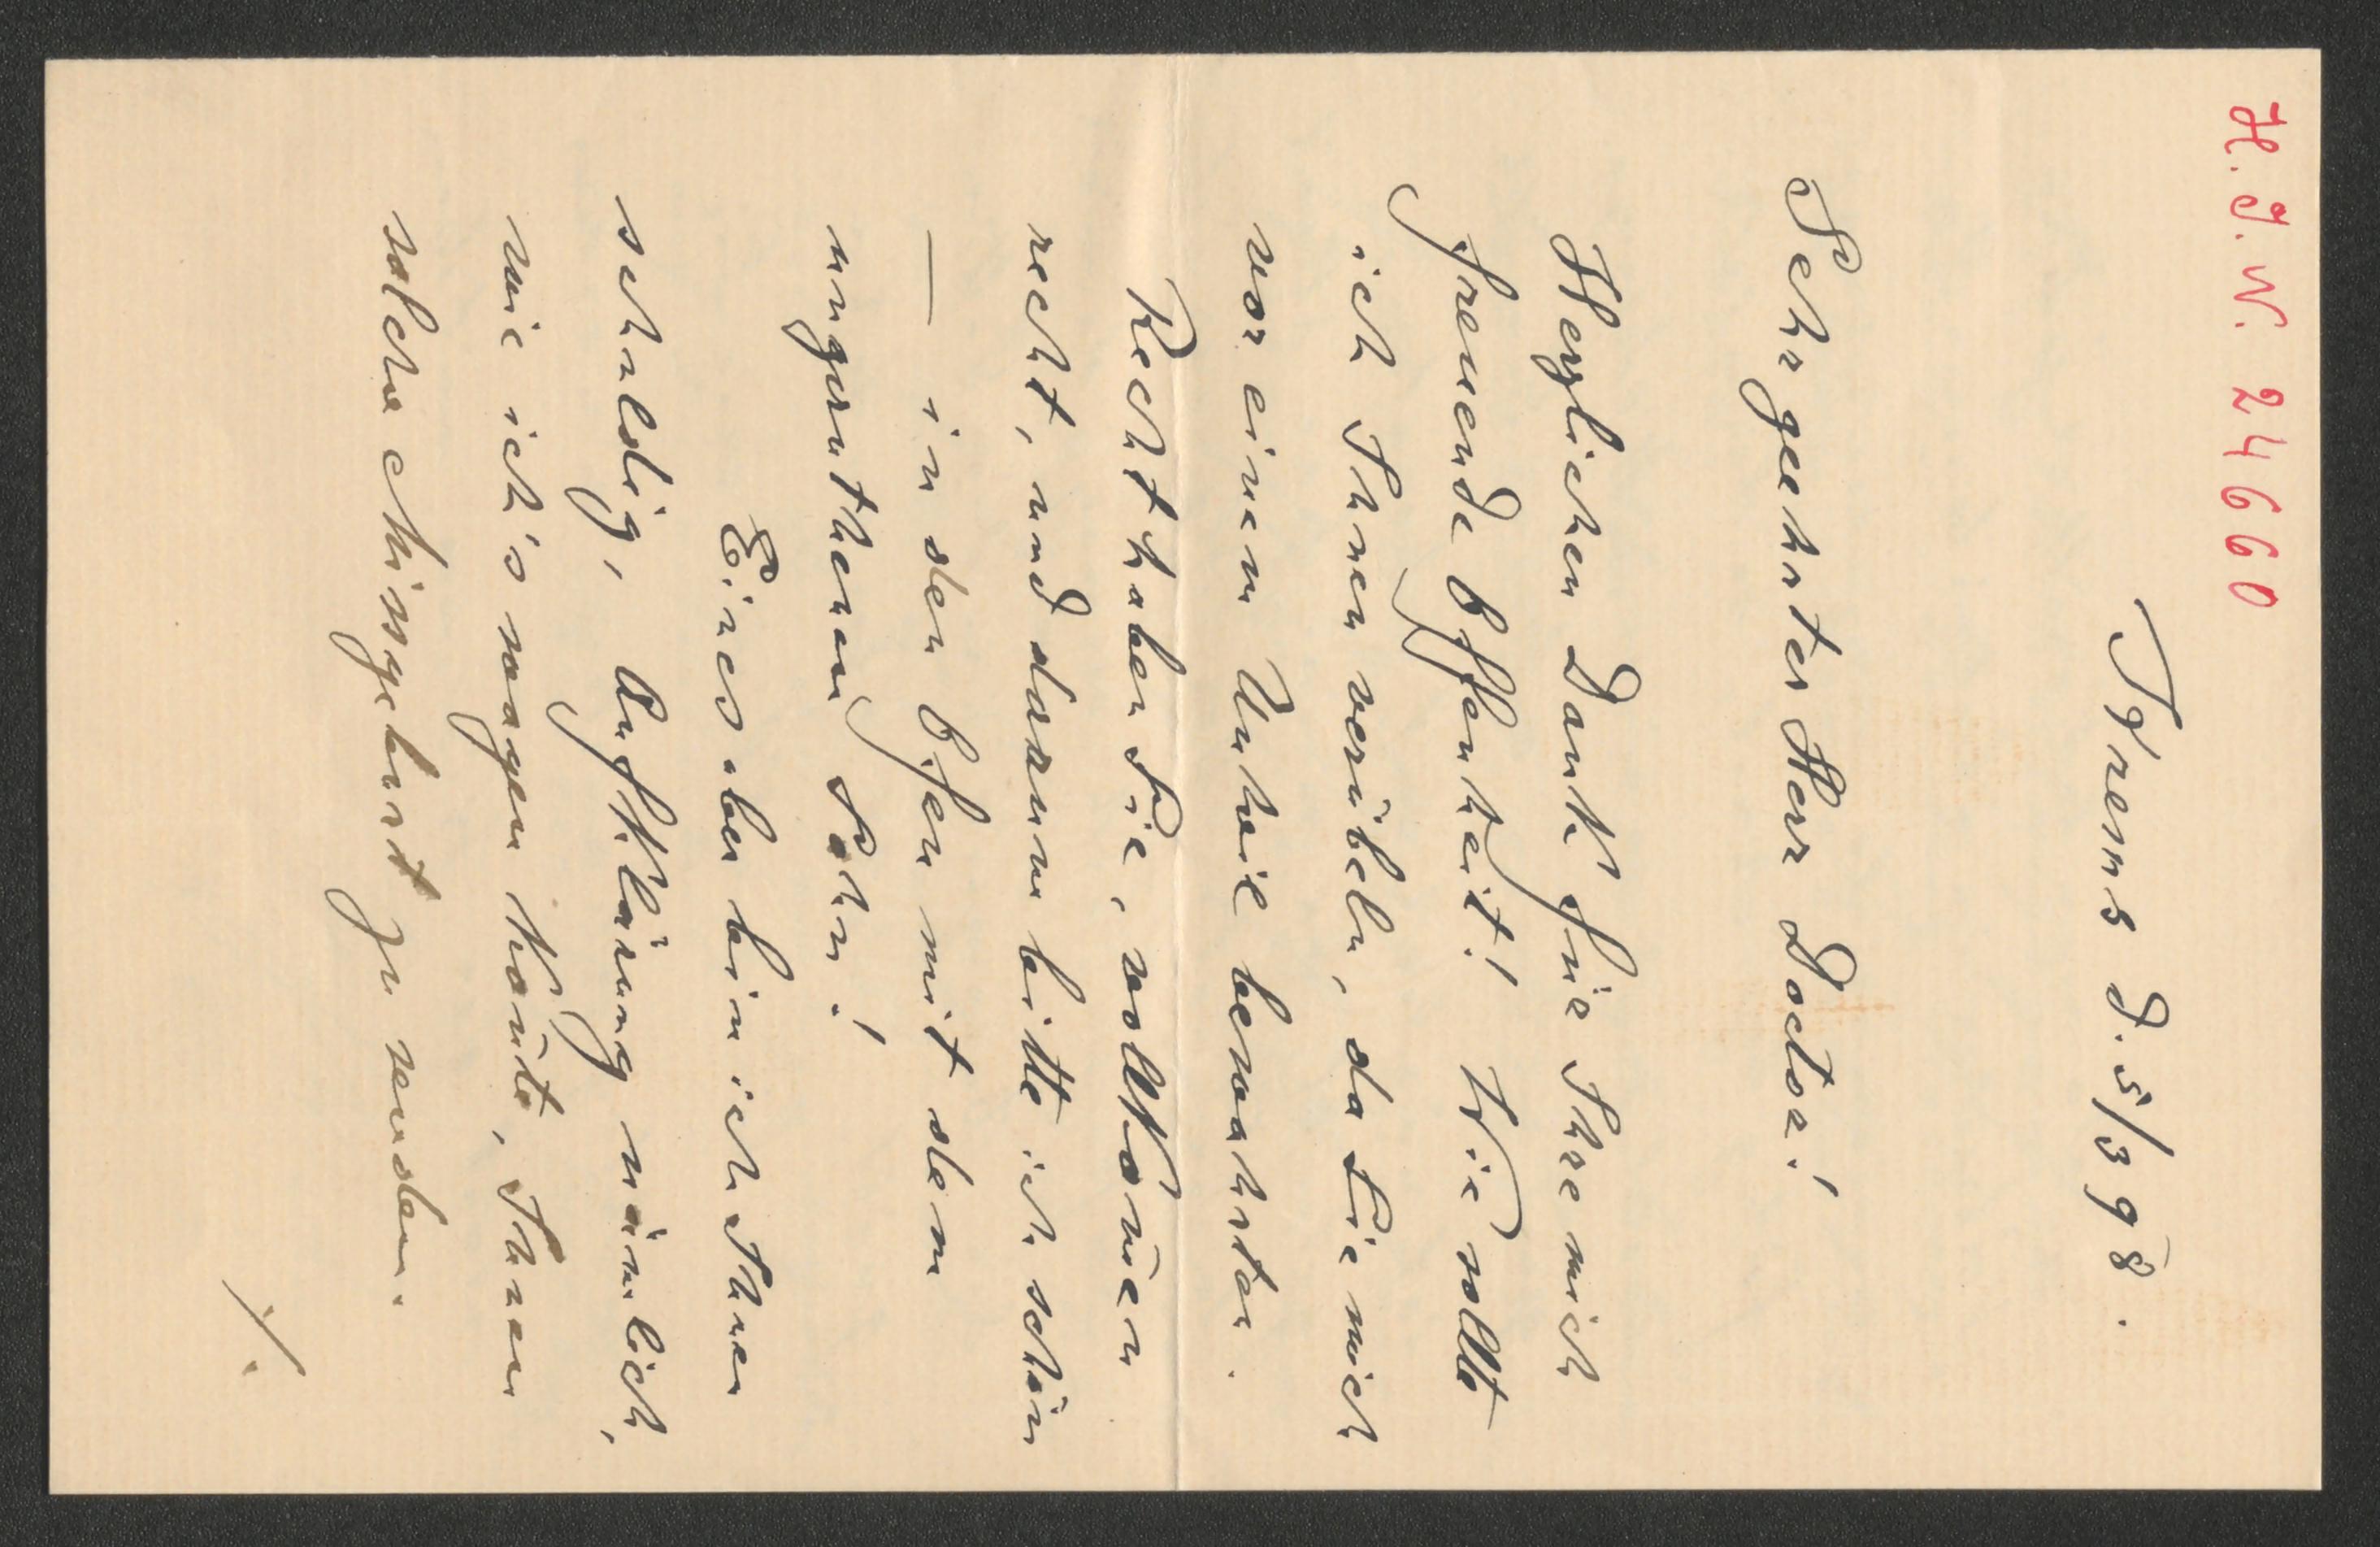 H. I. N. 24660
Krems d. 5/3 98.
Sehr geehrter Herr Doctor!
Herzlichen Dank für Ihre mich
freuende Offenheit! Wie sollte
ich Ihnen verübeln, da Sie mich
vor einem Unheil bewahrten.
Recht haben Sie, vollkommen
recht, und darum bitte ich schön
— in den Ofen mit dem
ungerathenen Sohn!
Eines aber bin ich Ihnen
schuldig, Aufklärung nämlich,
wie ich's wagen konnte, Ihnen
solche eine zu senden.
./.